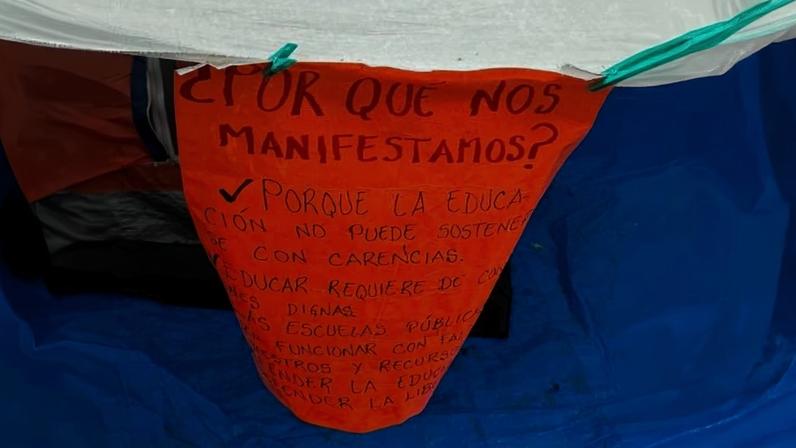 ¿POR QUE NOS
MANIFESTAMOS?
✓ PORQUE LA EDUCA-
CIÓN NO PUEDE SOSTENER
SE CON CARENCIAS.
✓ EDUCAR REQUIERE DE CON
NES DIGNAS
AS ESCUELAS PÚBLICA
FUNCIONAR CON FAL
ESTROS Y RECURSO
ENDER LA EDUC
ENDER LA LIB